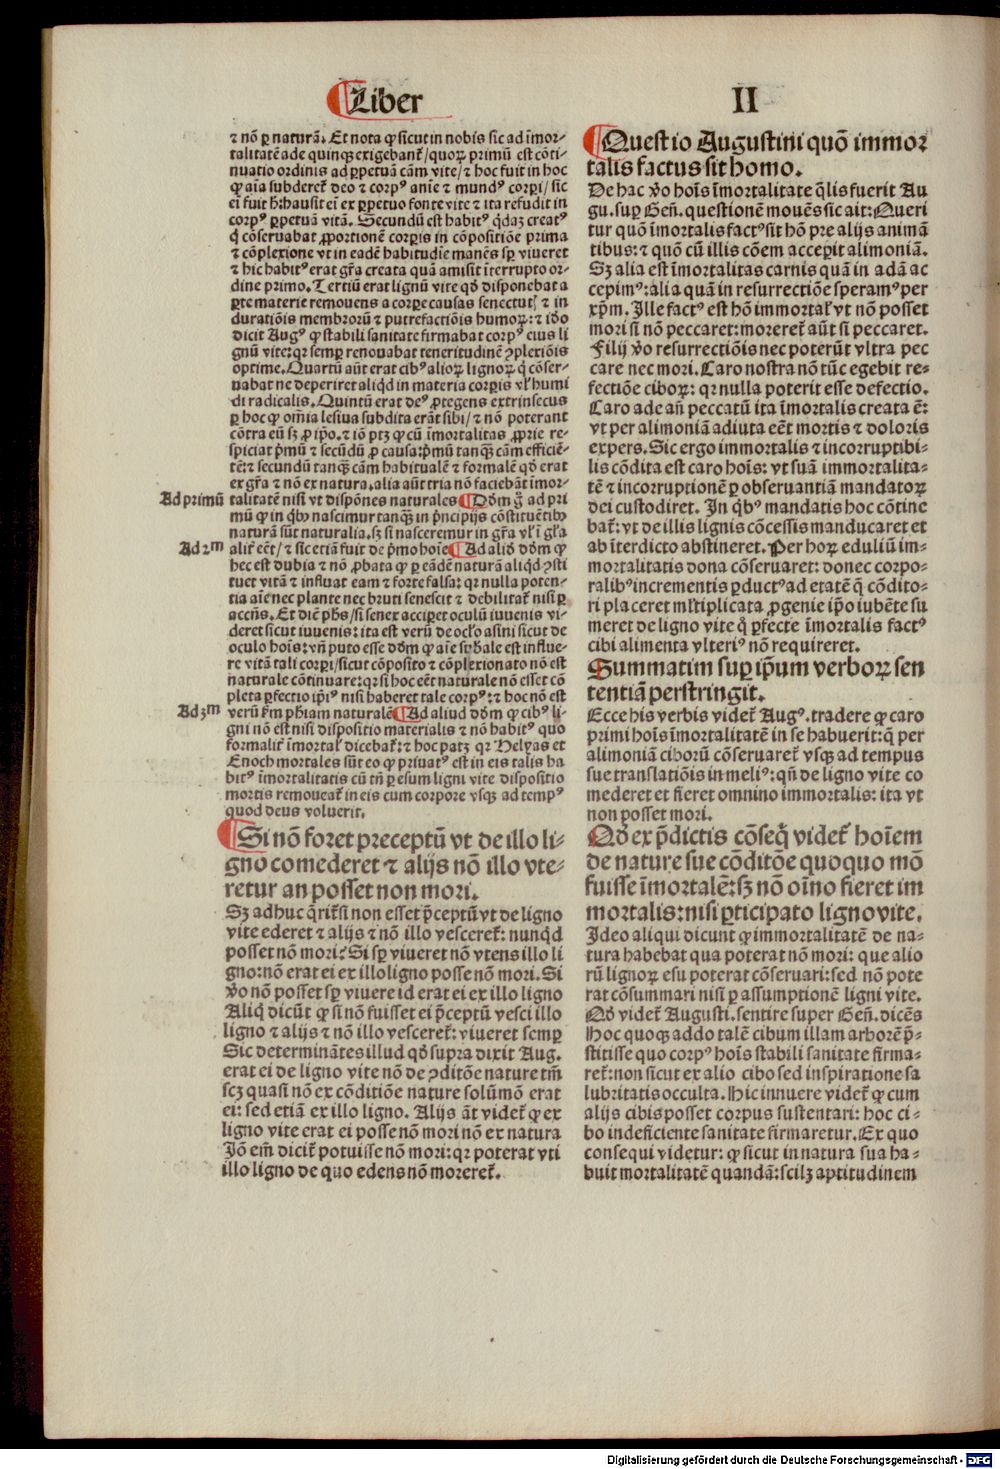 Liber II
⁊ nō ꝑ naturā. Et nota ꝙ sicut in nobis sic ad īmor-
talitatē ade quinqꝫ exigebant᷑/quoꝝ primū est cōti-
nuatio ordinis ad ꝑpetuā cām vite/⁊ hoc fuit in hoc
ꝙ aīa subderet᷑ deo ⁊ corpꝰ anīe ⁊ mundꝰ corpī/sic
ei fuit hꝫ: hausit eī ex ꝑpetuo fonte vite ⁊ ita refudit in
corpꝰ ꝑpetuā vitā. Secundū est habitꝰ q̇dāꝫ creatꝰ
q̇ cōseruabat ꝓportionē corꝑis in cōpositiōe prima
⁊ cōplexione vt in eadē habitudīe manēs sꝑ viueret
⁊ hic habitꝰ erat gr̄a creata quā amisit īterrupto or-
dine primo. Tertiū erat lignū vite qđ disponebat a
ꝑte materie remouens a corꝑe causas senectutꝭ ⁊ in
durationis membroꝝ ⁊ putrefactiōis humoꝝ: ⁊ iđo
dicit Augꝰ ꝙ stabili sanitate firmabat corpꝰ eius li
gnū vite: qꝛ semꝑ renouabat teneritudinē ꝯplexiōis
optime. Quartū aūt erat cibꝰ alioꝝ lignoꝝ q̇ cōser-
uabat ne deperiret aliqđ in materia corꝑis vl' humi
di radicalis. Quintū erat deꝰ ꝓtegens extrinsecus
ꝑ hoc ꝙ om̄ia lesiua subdita erāt sibi/⁊ nō poterant
cōtra eū sꝫ ꝓ ip̄o. ⁊ iō ptꝫ ꝙ cū īmortalitas ꝓprie re-
spiciat p̄mū ⁊ secūdū ꝓ causa: p̄mū tanqꝫ cām efficiē-
tē: ⁊ secundū tanqꝫ cām habitualē ⁊ formalē qđ erat
ex gr̄a ⁊ nō ex natura. alia aūt tria nō faciebāt īmor-
Ad primū talitatē nisi vt dispōnes naturales Dōm g̊ ad pri
mū ꝙ in q̇bꝰ nascimur tanqꝫ in p̄ncipijs cōstituētibꝰ
naturā sūt naturalia. sꝫ si nasceremur in gr̄a vl' ī gl'a
Ad 2m alit᷑ eēt/⁊ sic etiā fuit de p̄mo hoīe Ad aliđ dōm ꝙ
hec est dubia ⁊ nō ꝓbata ꝙ ꝑ eādē naturā aliqđ ꝯsti
tuet vitā ⁊ influat eam ⁊ forte falsa: qꝛ nulla poten-
tia aīe nec plante nec bruti senescit ⁊ debilitat᷑ nisi ꝑ
accn̄s. Et dicit ph̄s/si senex acciꝑet oculū iuuenis vi-
deret sicut iuuenis: ita est verū de oclo asini sicut de
oculo hoīs: vn̄ puto esse dōm ꝙ aīe sp̄uale est influe-
re vitā tali corpī/sicut cōposito ⁊ cōplexionato nō est
naturale cōtinuare: qꝛ si hoc eēt naturale nō esset cō
pleta ꝑfectio ip̄iꝰ nisi haberet tale corpꝰ: ⁊ hoc nō est
Ad 3m verū scđm phīam naturalē Ad aliud dōm ꝙ cibꝰ li-
gni nō est nisi dispositio materialis ⁊ nō habitꝰ quo
formalit᷑ īmortal' dicebat᷑: ⁊ hoc patꝫ qꝛ Helyas et
Enoch mortales sūt eo ꝙ priuatꝰ est in eis talis ha
bitꝰ īmortalitatis cū tn̄ ꝑ esum ligni vite dispositio
mortis remoueat᷑ in eis cum corpore vsqꝫ ad tempꝰ
quod deus voluerit.
Si nō foret preceptū vt de illo li-
gno comederet ⁊ alijs nō illo vte-
retur an posset non mori.
Sꝫ adhuc q̄rit᷑ si non esset p̄ceptū vt de ligno
vite ederet ⁊ alijs ⁊ nō illo vesceret᷑: nunqđ
posset nō mori? Si sꝑ viueret nō vtens illo li
gno: nō erat ei ex illo ligno posse nō mori. Si
v̊o nō posset sꝑ viuere id erat ei ex illo ligno
Aliq̇ dicūt ꝙ si nō fuisset ei p̄ceptū vesci illo
ligno ⁊ alijs ⁊ nō illo vesceret᷑: viueret semꝑ
Sic determinātes illud qđ supra dixit Aug.
erat ei de ligno vite nō de ꝯditōe nature tm̄
scꝫ quasi nō ex cōditiōe nature solūmō erat
ei: sed etiā ex illo ligno. Alijs āt videt᷑ ꝙ ex
ligno vite erat ei posse nō mori nō ex natura
Iō em̄ dicit᷑ potuisse nō mori: qꝛ poterat vti
illo ligno de quo edens nō moreret᷑.
Questio Augustini quō immor
talis factus sit homo.
De hac v̊o hoīs īmortalitate q̄lis fuerit Au
gu. suꝑ Gen̄. questionē mouēs sic ait: Queri
tur quō īmortalis factꝰ sit hō pre alijs animā
tibus: ⁊ quō cū illis cōem acceꝑit alimoniā.
Sꝫ alia est īmortalitas carnis quā in adā ac
cepimꝰ: alia quā in resurrectiōe speramꝰ per
xp̄m. Ille factꝰ est hō immortal' vt nō posset
mori si nō peccaret: moreret᷑ aūt si peccaret.
Filij v̊o resurrectiōis nec poterūt vltra pec
care nec mori. Caro nostra nō tūc egebit re-
fectiōe ciboꝝ: qꝛ nulla poterit esse defectio.
Caro ade an̄ peccatū ita īmortalis creata ē:
vt per alimoniā adiuta eēt mortis ⁊ doloris
expers. Sic ergo immortalis ⁊ incorruptibi-
lis cōdita est caro hoīs: vt suā immortalita-
tē ⁊ incorruptionē ꝑ obseruantiā mandatoꝝ
dei custodiret. In q̇bꝰ mandatis hoc cōtine
bat᷑: vt de illis lignis cōcessis manducaret et
ab īterdicto abstineret. Per hoꝝ eduliū im-
mortalitatis dona cōseruaret: donec corpo-
ralibꝰ incrementis ꝑductꝰ ad etatē q̄ cōdito-
ri placeret ml'tiplicata ꝓgenie ip̄o iubēte su
meret de ligno vite q̇ ꝑfecte īmortalis factꝰ
cibi alimenta vlteriꝰ nō requireret.
Summatim suꝑ ip̄um verboꝝ sen
tentiā perstringit.
Ecce his verbis videt᷑ Augꝰ. tradere ꝙ caro
primi hoīs īmortalitatē in se habuerit: q̄ per
alimoniā ciborū cōseruaret᷑ vsqꝫ ad tempus
sue translatiōis in meliꝰ: qn̄ de ligno vite co
mederet et fieret omnino immortalis: ita vt
non posset mori.
Qđ ex p̄dictis cōseq̇ videt᷑ hoīem
de nature sue cōditōe quoquo mō
fuisse īmortalē: sꝫ nō oīno fieret im
mortalis: nisi ꝑticipato ligno vite.
Ideo aliqui dicunt ꝙ immortalitatē de na-
tura habebat qua poterat nō mori: que alio
rū lignoꝝ esu poterat cōseruari: sed nō pote
rat cōsummari nisi ꝑ assumptionē ligni vite.
Qđ videt᷑ Augusti. sentire super Gen̄. dicēs
Hoc quoqꝫ addo talē cibum illam arborē p̄-
stitisse quo corpꝰ hoīs stabili sanitate firma-
ret᷑: non sicut ex alio cibo sed inspiratione sa
lubritatis occulta. Hic innuere videt᷑ ꝙ cum
alijs cibis posset corpus sustentari: hoc ci-
bo indeficiente sanitate firmaretur. Ex quo
consequi videtur: ꝙ sicut in natura sua ha-
buit mortalitatē quandā: scilꝫ aptitudinem
Digitalisierung gefördert durch die Deutsche Forschungsgemeinschaft - DFG